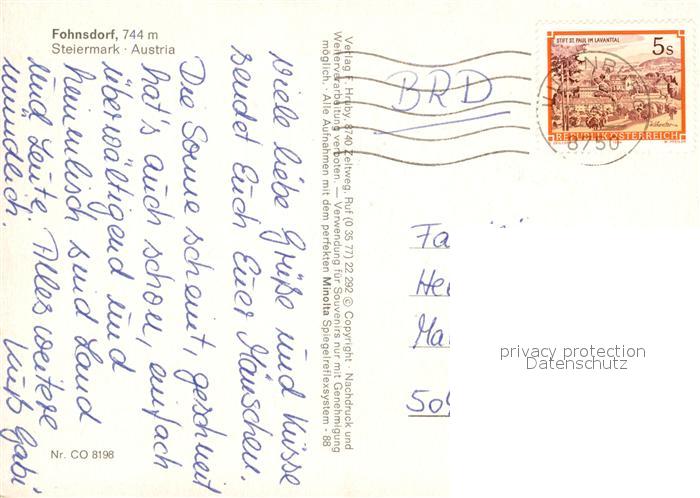 Fohnsdorf, 744 m
Steiermark · Austria
Viele liebe Grüße und Küsse
sendet Euch Euer Mäuschen.
Die Sonne scheint, geschneit
hat's auch schon, einfach
überwältigend und
heimelisch sind Land
und Leute. Alles weitere
mündlich.
Kuß Gabi
Nr. CO 8198
Verlag F. Hruby, 8740 Zeltweg, Ruf (0 35 77) 22 292 © Copyright · Nachdruck und
Weiterverarbeitung verboten. — Verwendung für Souvenirs nur mit Genehmigung
möglich. · Alle Aufnahmen mit dem perfekten Minolta Spiegelreflexsystem - 88
BRD
STIFT ST. PAUL IM LAVANTTAL
5 S
REPUBLIK ÖSTERREICH
8750
Fa
He
Ma
50
privacy protection
Datenschutz